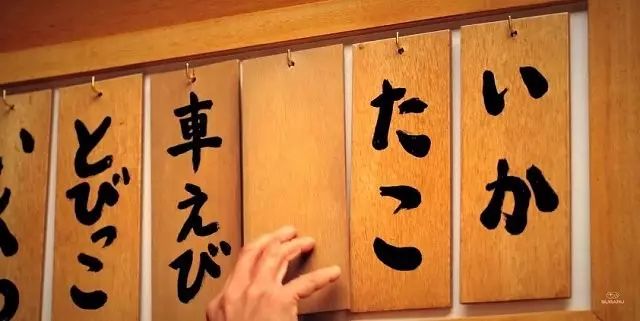 いか
たこ
車えび
とびっこ
SUBARU